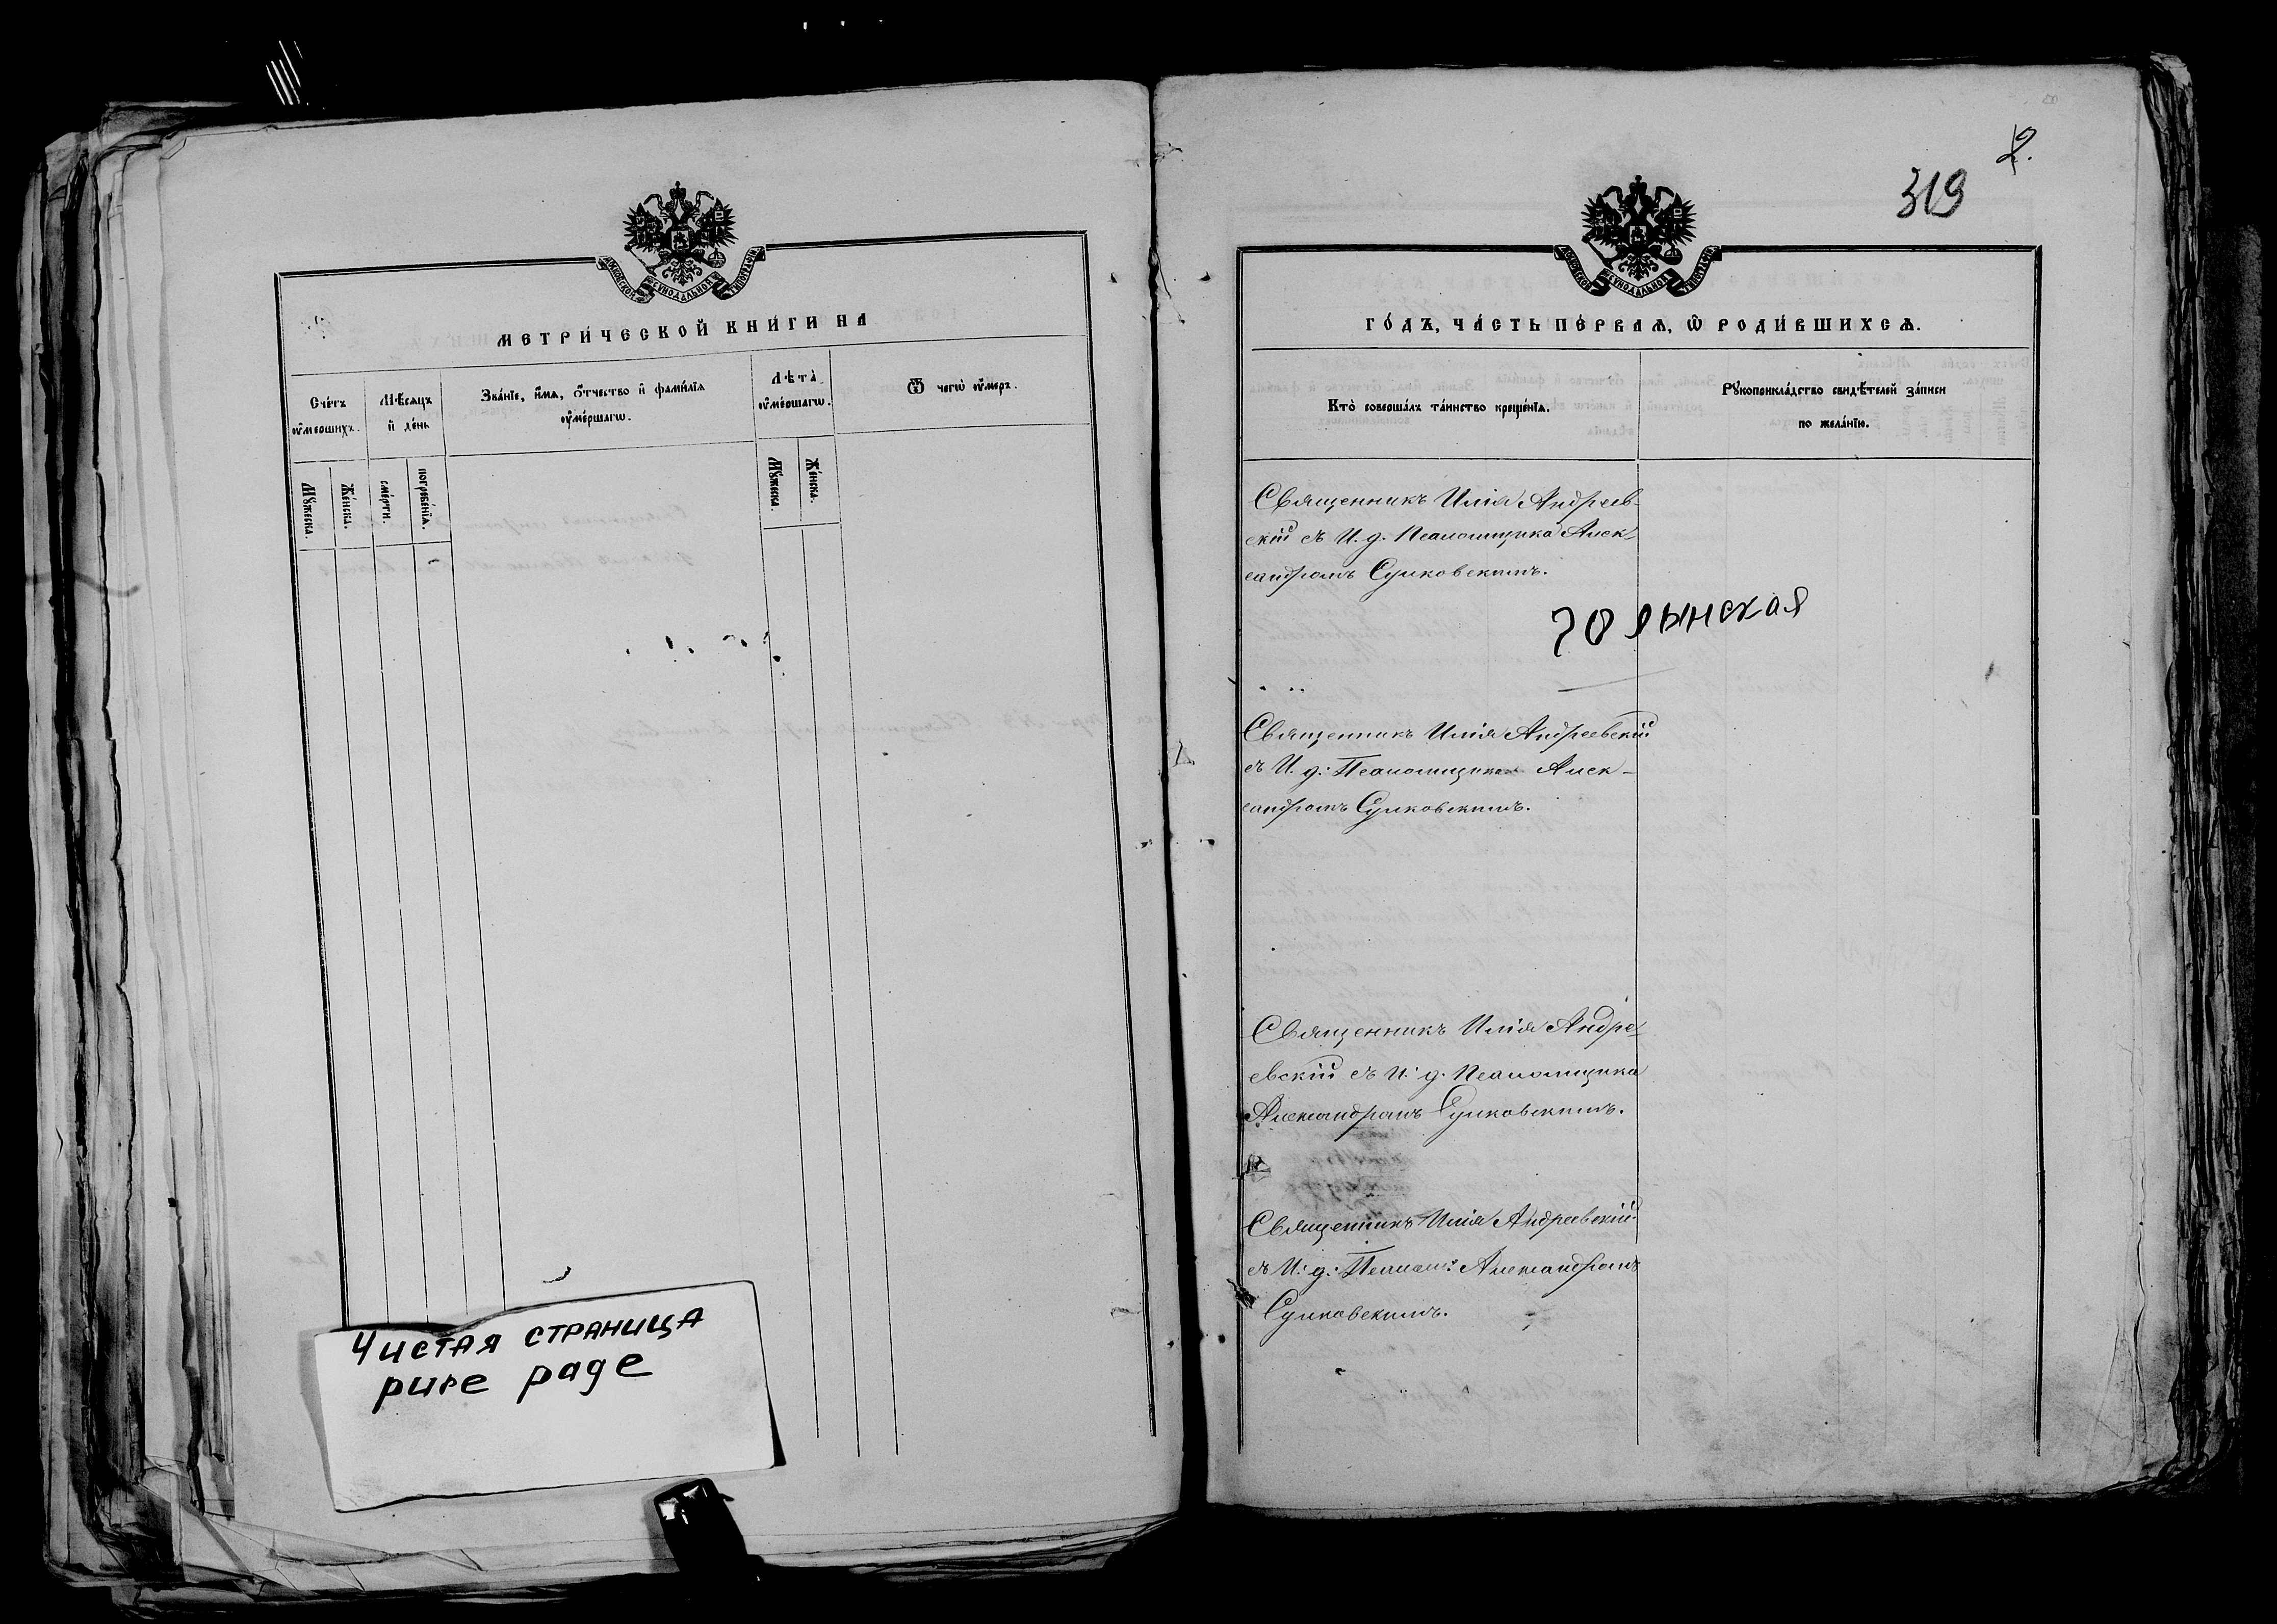 МОСКОВСКОЙ СѴНОДАЛЬНОЙ ТИПОГРАФІИ
МЕТРИ́ЧЕСКОЙ КНИ́ГИ НА
Сче́тъ ᲂу҆ме́ршихъ.
Мѣ́сяцъ и҆ де́нь
Зва́нїе, и҆́мѧ, ѻ҆́тчество и҆ фами́лїѧ ᲂу҆ме́ршагѡ.
Лѣта̀ ᲂу҆ме́ршагѡ.
Ѿ чегѡ̀ ᲂу҆́меръ.
Мꙋ́жеска.
Же́нска.
сме́рти.
погребе́нїѧ.
Мꙋ́жеска.
Же́нска.
Чистая страница
pure page
2.
319
МОСКОВСКОЙ СѴНОДАЛЬНОЙ ТИПОГРАФІИ
ГО́ДЪ, ЧА́СТЬ ПЕ́РВАѦ, Ѡ҆ РОДИ́ВШИХСѦ.
Кто̀ соверша́лъ та́инство креще́нїѧ.
Рꙋкоприкла́дство свидѣ́телей за́писи
по жела́нїю.
Священникъ Илія Андреев-
скій съ И. д. Псаломщика Алек-
сандромъ Сулковскимъ.
Священникъ Илія Андреевскій
съ И. д: Псаломщика Алек-
сандромъ Сулковскимъ.
Священникъ Илія Андре-
евскій съ И: д. Псаломщика
Александромъ Сулковскимъ.
Священникъ Илія Андреевскій
съ И: д: Псалом: Александромъ
Сулковскимъ.